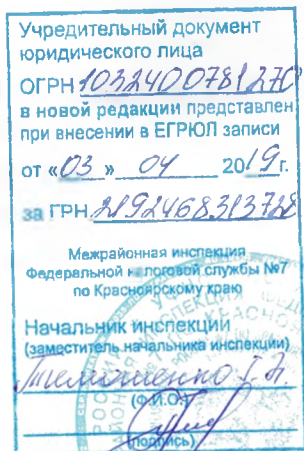 Учредительный документ
юридического лица
ОГРН 1032400781270
в новой редакции представлен
при внесении в ЕГРЮЛ записи
от «03» 04 2019г.
за ГРН 2192468313728
Межрайонная инспекция
Федеральной налоговой службы №7
по Красноярскому краю
Начальник инспекции
(заместитель начальника инспекции)
Тимошенко
(Ф.И.О)
(подпись)